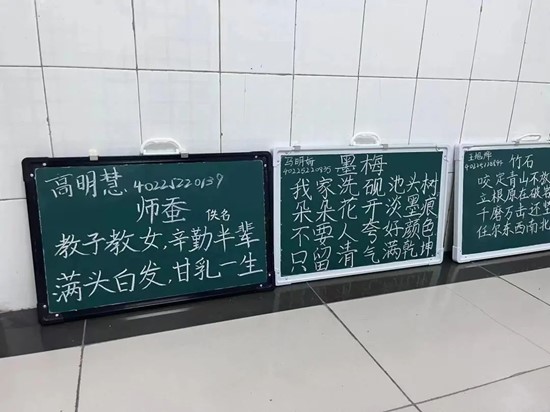 高明慧 40225220139
师蚕
佚名
教子教女,辛勤半辈
满头白发,甘乳一生
墨梅
我家洗砚池头树
朵朵花开淡墨痕
不要人夸好颜色
只留清气满乾坤
竹石
咬定青山不
立根原在破
千磨万击还
任尔东西南北